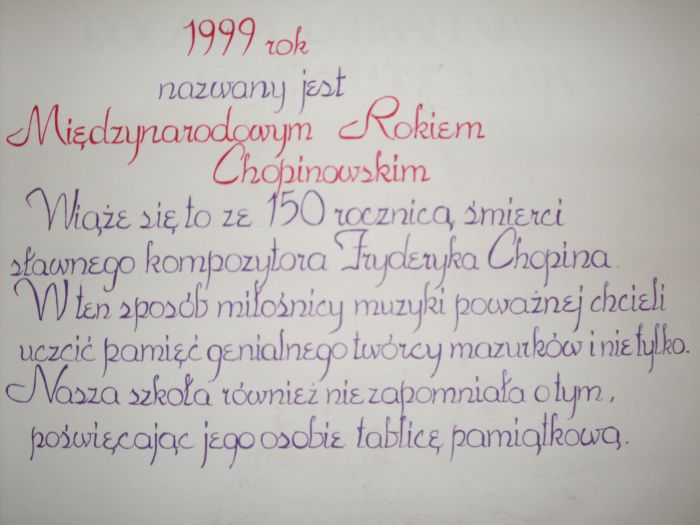 1999 rok
nazwany jest
Międzynarodowym Rokiem
Chopinowskim
Wiąże się to ze 150 rocznicą śmierci
sławnego kompozytora Fryderyka Chopina.
W ten sposób miłośnicy muzyki poważnej chcieli
uczcić pamięć genialnego twórcy mazurków i nie tylko.
Nasza szkoła również nie zapomniała o tym,
poświęcając jego osobie tablicę pamiątkową.